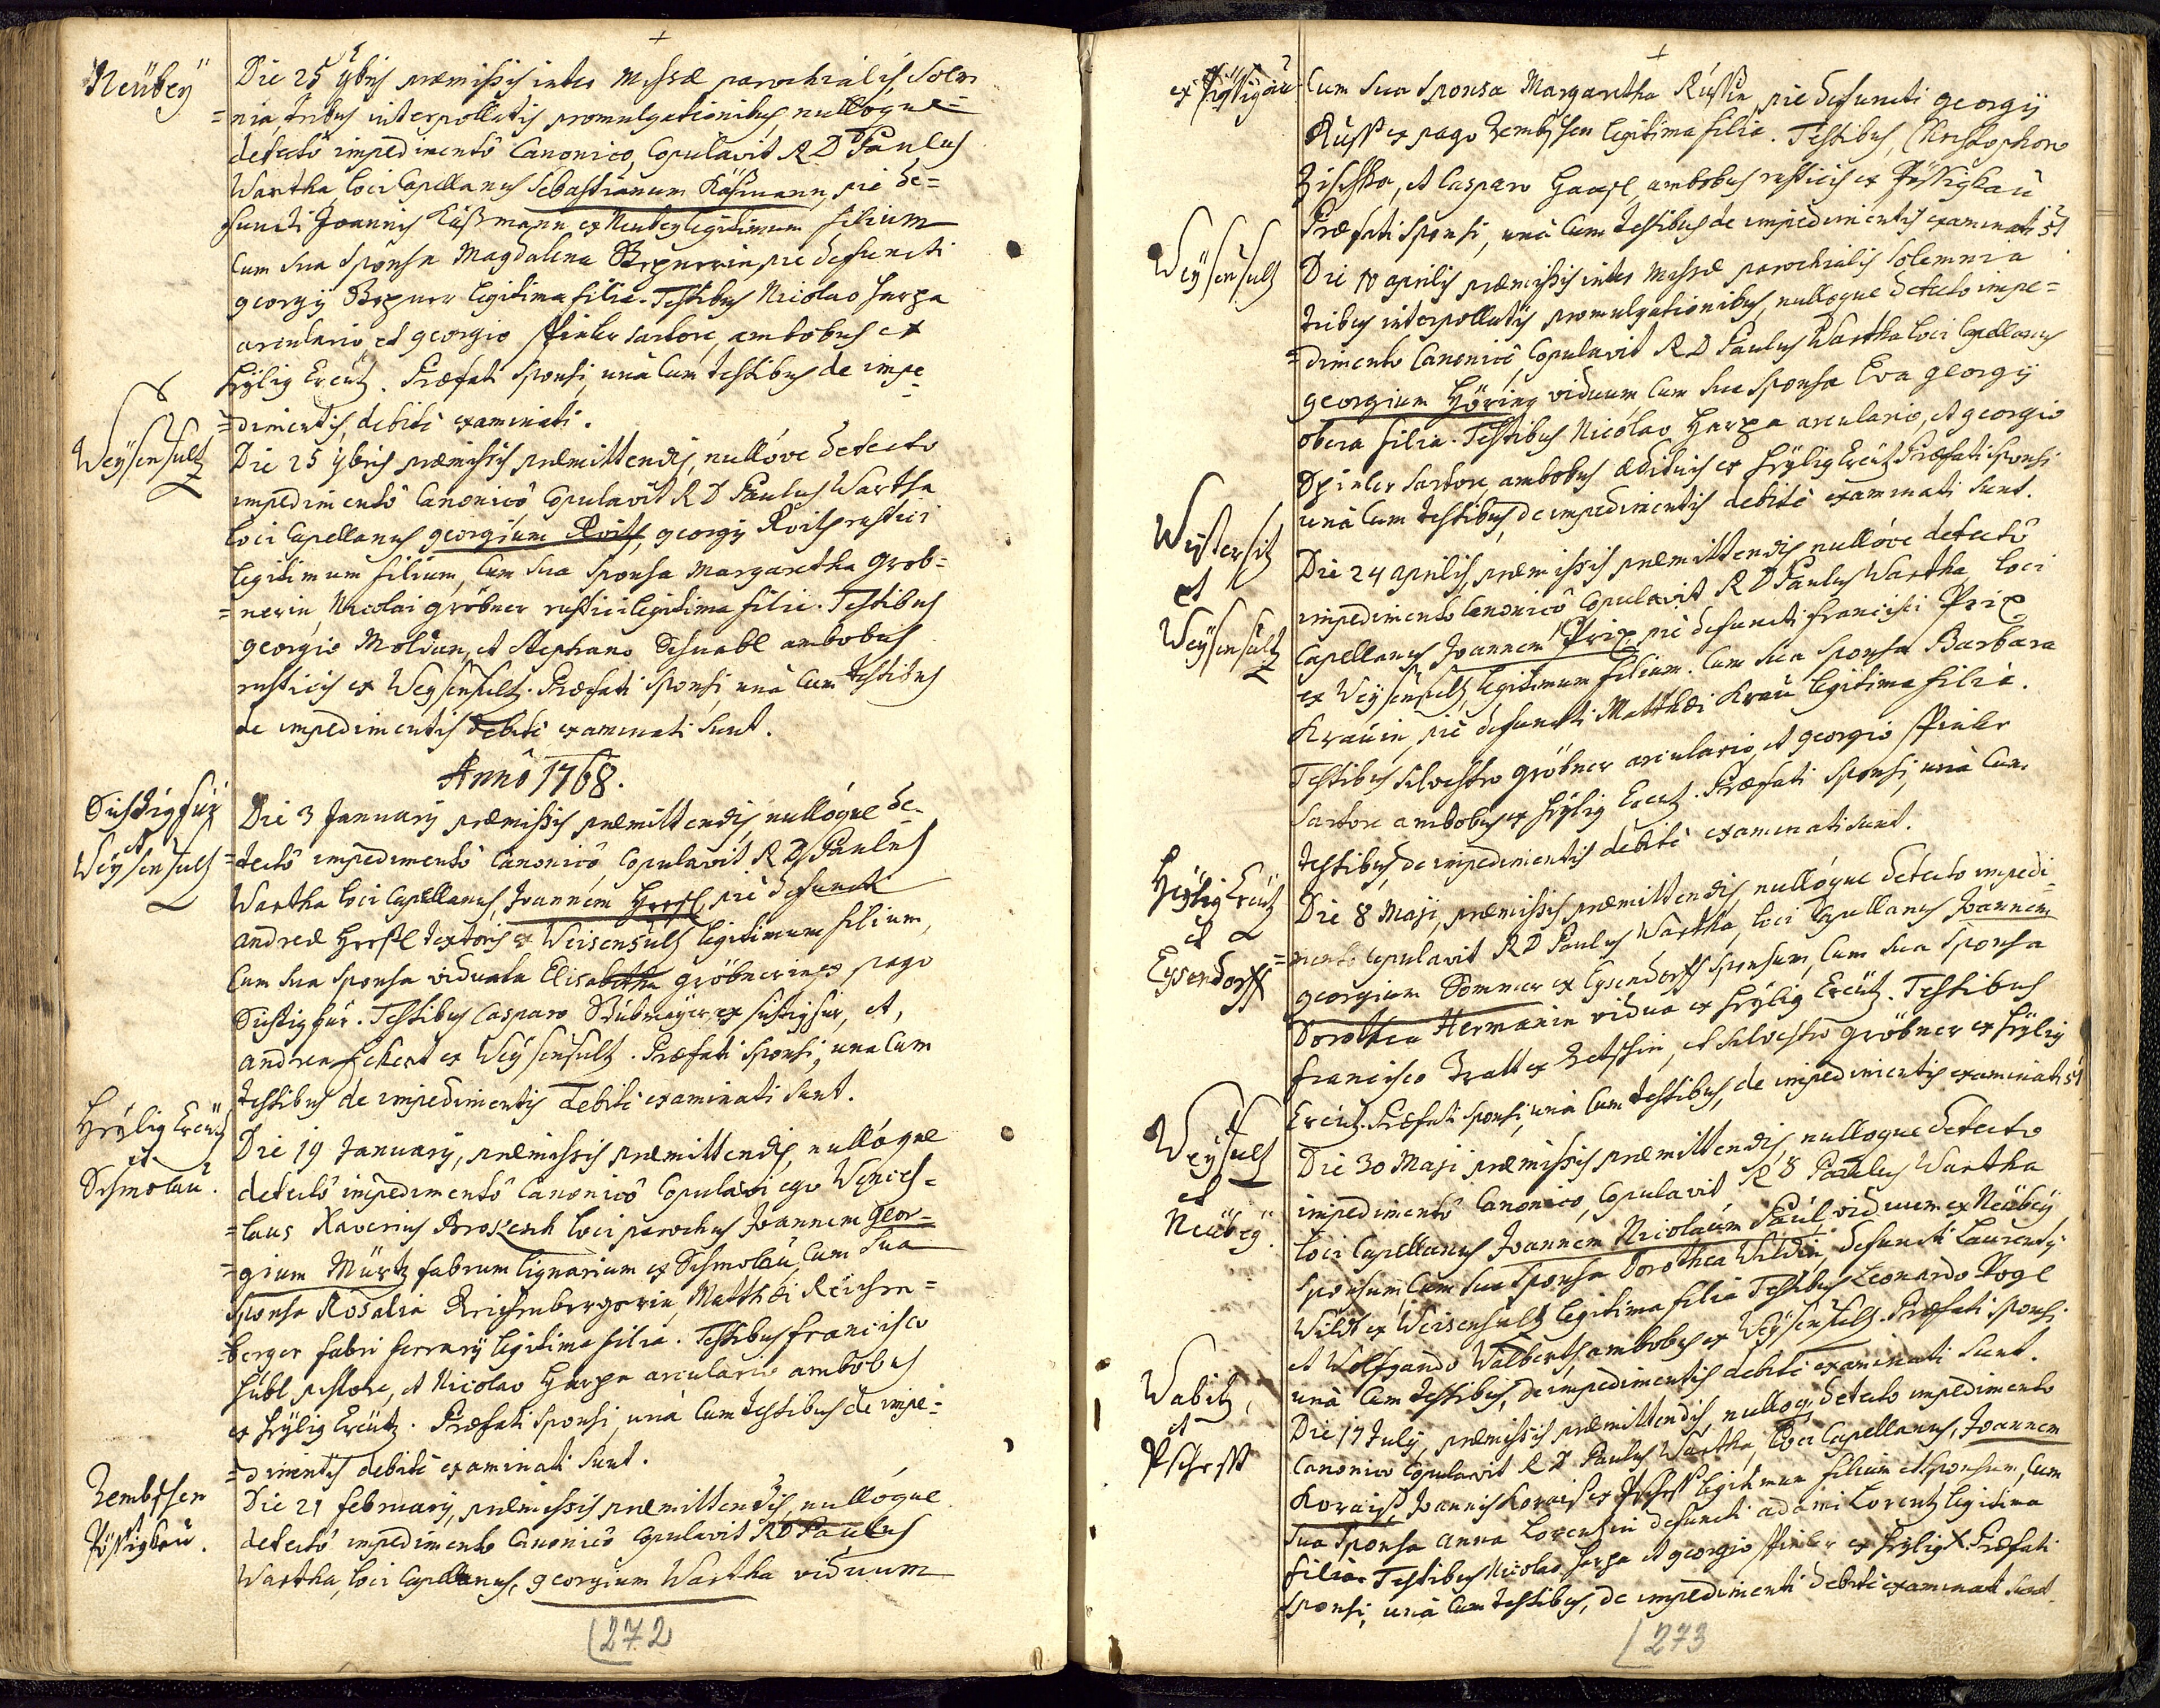 Neubey
Die 25 9bris præmissis inter Missæ parochialis solem
=nia, tribus interpollatis promulgationibus, nullóque
detectô impedimentô Canonico, Copulavit R D Paulus
Wartha loci Capellanus Sebastianum Käsmann, pie de=
functi Joannis Käßmann ex Neubey legitimum filium
Cum sua Sponsa Magdalena pie defuncti
georgij legitima filia. Testibus Nicolao Harpa
arculario et georgio Spinler sartore, ambobus ex
Heylig Creutz. Præfati Sponsi, unà Cum testibus de impe
=dimentis, debitè examinati.
Weysensultz
Die 25 9bris præmissis præmittendis, nullóve detecto
impedimentô Canonicô Copulavit R D Paulus Wartha
loci Capellanus georgium Roith, georgij Roith rustici
legitimum filium, Cum sua Sponsa Margaretha Grob=
=nerin, Nicolai gröbner rustici legitima filia. Testibus
georgio Moldan, et Stephano Schnabl ambobus
rusticis ex Weysensultz. Præfati Sponsi, unà Cum testibus
de impedimentis debitè examinati sunt.
Annô 1768.
Sichtigfür
et
Weysensultz
Die 3 January præmissis præmittendis, nullóque de
=tectô impedimentô Canonicô, Copulavit R D Paulus
Wartha loci Capellanus, Joannem piè defuncti
andreæ textoris ex Weisensultz legitimum filium,
Cum sua Sponsa viduata Elisabetha gröbnerin ex pago
Sichtigfür. Testibus Casparo Stubmayer ex sichtigfür, et,
andrea Eckert ex Weysensultz. Præfati Sponsi, una Cum
testibus de impedimentis debitè examinati sunt.
Heylig Creutz
et
Schmolau.
Die 19 January, præmissis præmittendis, nullóque
detectô impedimentô Canonicô Copulavi ego Wences=
=laus Xaverius Broschk loci parochus Joannem Geor=
=gium Mürtz fabrum lignarium ex Schmolau, Cum sua
Sponsa Rosalia Reichenbergerin, Matthæi Reichen=
=berger fabri ferrarij legitima filia. Testibus francisco
Hübl pistore, et Nicolao Harpa arculario ambobus
ex Heylig Creutz. Præfati Sponsi, unà Cum testibus de impe=
=dimentis debitè examinati sunt.
Zembschen
Pössigkau.
Die 21 february, præmissis præmittendis, nullóque
detectô impedimento Canonicô Copulavit R D Paulus
Wartha, loci Capellanus, georgium Wartha viduum
272
ex Pössigkau
Cum sua Sponsa Margaretha Russin, pie defuncti georgij
Russ ex pago Zembschen legitima filia. Testibus, Christophoro
Zischka, et Casparo Haasl, ambobus rusticis ex Pössigkau
Præfati Sponsi, unà Cum testibus de impedimentis examinati st
Weysensultz
Die 18 aprilis præmissis inter Missæ parochialis solemnia
tribus interpollatis promulgationibus, nullóque detecto impe=
=dimento Canonicô, Copulavit R D Paulus Wartha loci Capellanus
georgium Höring viduum Cum sua Sponsa Eva georgij
filia. Testibus Nicolao Harpa arculario, et georgio
Spinler sartore ambobus ædituis ex Heylig Creutz Præfati Sponsi
unà Cum testibus, de impedimentis debitè examinati sunt.
et
Weysensultz
Die 24 aprilis, præmissis præmittendis nullóve detectô
impedimentô Canonicô Copulavit R D Paulus Wartha, loci
Capellanus Joannem Prix, piè defuncti francisci Prix
ex Weysensultz, legitimum filium. Cum sua Sponsa Barbara
Krauin, piè defuncti Matthæi Krau legitima filia.
Testibus Silvestro gröbner arculario, et georgio Spinler
Sartore ambobus ex Heylig Creutz. Præfati Sponsi, unà Cum
testibus, de impedimentis debitè examinati sunt.
Heylig Creutz
et
Eysendorff
Die 8 Maji, præmissis præmittendis, nullóque detecto impedi
=mento Copulavit R D Paulus Wartha, loci Capellanus Joannem
georgium Sommer ex Eysendorff Sponsum, Cum sua Sponsa
Dorothea Hermanin vidua ex Heylig Creutz. Testibus
francisco Tratt ex et Silvestro gröbner ex Heylig
Creutz. Præfati Sponsi, unà Cum testibus, de impedimentis examinati st
Weysults
et
Neubey.
Die 30 Maji præmissis præmittendis, nullóque detecto
impedimentô Canonico, Copulavit R D Paulus Wartha
loci Capellanus Joannem Nicolaum Paul, viduum ex Neubey,
Sponsum, Cum sua Sponsa Dorothea Wildin, defuncti Laurentij
Wildt ex Weisensultz legitima filia Testibus Leonardo Vogl
et Wolfgando Walberth, ambobus ex Weysensultz. Præfati Sponsi
unà Cum testibus, de impedimentis debitè examinati sunt.
Wabitz,
et
Die 17 July, præmissis præmittendis, nulloq; detecto impedimento
Canonico Copulavit R D Paulus Wartha, loci Capellanus, Joannem
Koraisß, Joannis Koraisß ex legitimum filium et Sponsum, Cum
sua Sponsa anna Lorentzin defuncti adami Lorentz legitima
filia. Testibus Nicolao Harpa et georgio Spinler ex Heylig X. Præfati
Sponsi, unà Cum testibus, de impedimenti debitè examinati sunt.
273